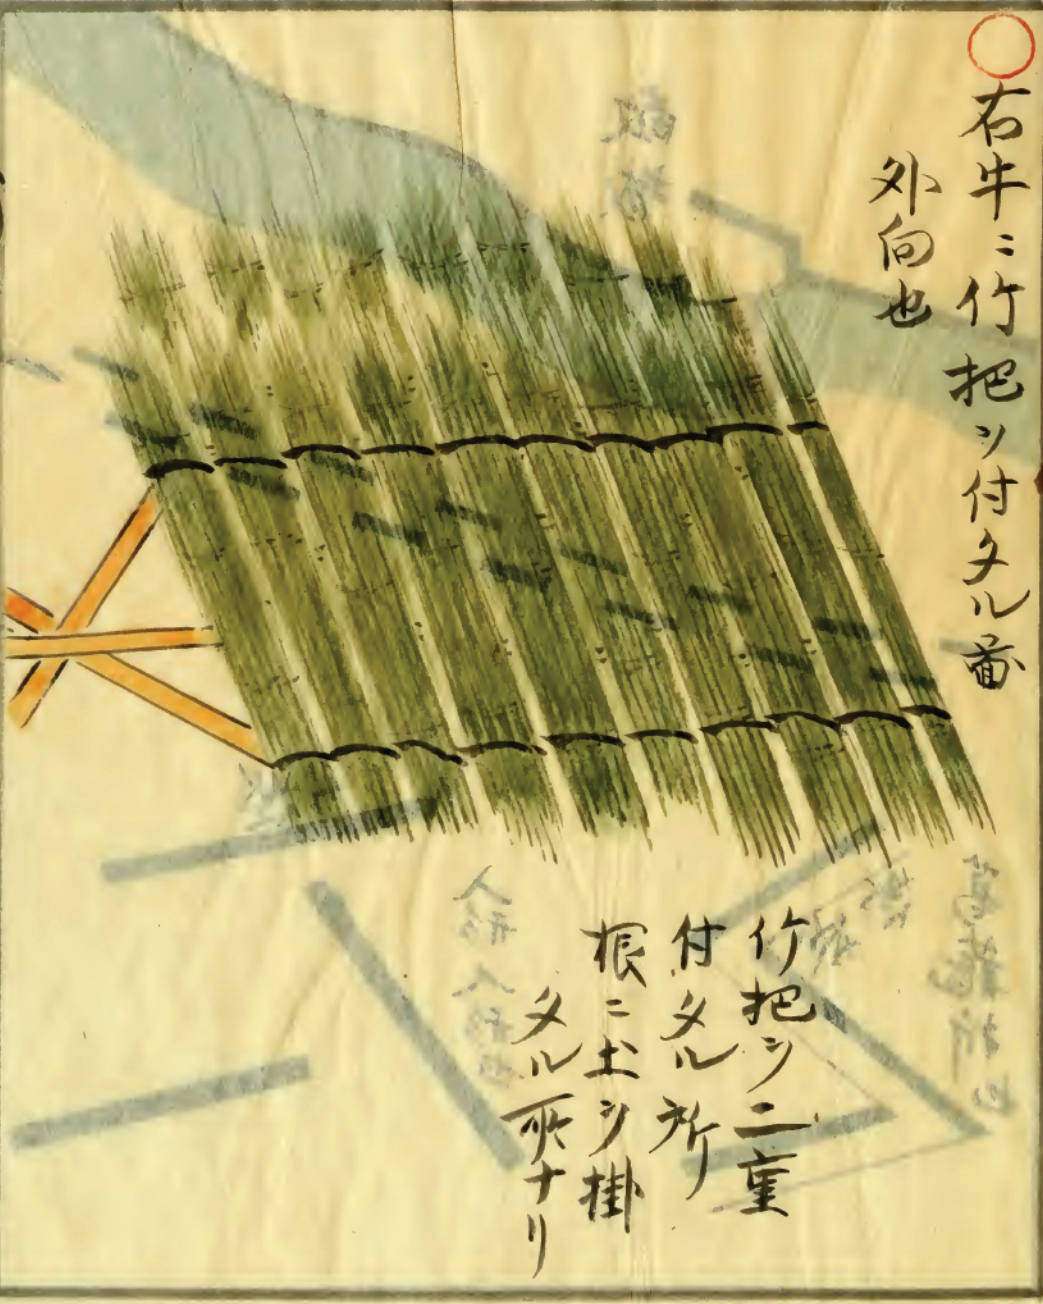 右牛ニ竹把ヲ付タル畄
外向也
竹把ヲ二重
付タル所
根ニ土ヲ掛
タル所ナリ